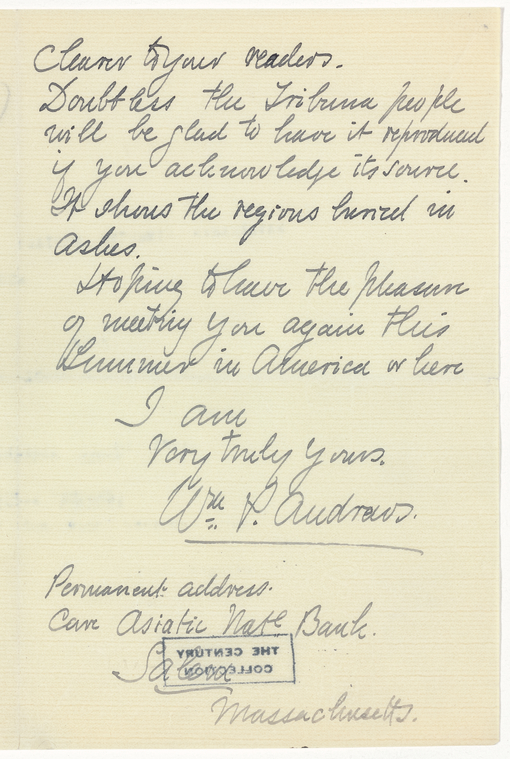 Clearer to your readers.
Doubtless the Tribuna people
will be glad to have it reproduced
if you acknowledge its source.
It shows the regions buried in
Ashes.
Hoping to have the pleasure
of meeting you again this
Summer in America or here
I am
Very truly Yours.
Wm P. Andrews.
Permanent address.
Care Asiatic Natl Bank.
THE CENTURY
COLLECTION
Salem
Massachusetts.